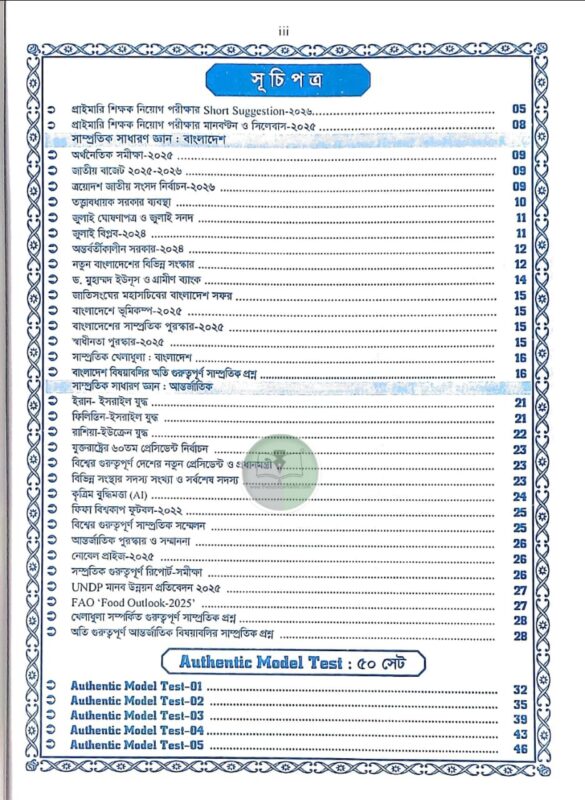 iii
সূচিপত্র
প্রাইমারি শিক্ষক নিয়োগ পরীক্ষার Short Suggestion-২০২৬ 05
প্রাইমারি শিক্ষক নিয়োগ পরীক্ষার মানবণ্টন ও সিলেবাস-২০২৫ 08
সাম্প্রতিক সাধারণ জ্ঞান : বাংলাদেশ
অর্থনৈতিক সমীক্ষা-২০২৫ 09
জাতীয় বাজেট ২০২৫-২০২৬ 09
ত্রয়োদশ জাতীয় সংসদ নির্বাচন-২০২৬ 09
তত্ত্বাবধায়ক সরকার ব্যবস্থা 10
জুলাই ঘোষণাপত্র ও জুলাই সনদ 11
জুলাই বিপ্লব-২০২৪ 11
অন্তর্বর্তীকালীন সরকার-২০২৪ 12
নতুন বাংলাদেশের বিভিন্ন সংস্কার 12
ড. মুহাম্মদ ইউনূস ও গ্রামীণ ব্যাংক 14
জাতিসংঘের মহাসচিবের বাংলাদেশ সফর 15
বাংলাদেশে ভূমিকম্প-২০২৫ 15
বাংলাদেশের সাম্প্রতিক পুরস্কার-২০২৫ 15
স্বাধীনতা পুরস্কার-২০২৫ 15
সাম্প্রতিক খেলাধুলা : বাংলাদেশ 16
বাংলাদেশ বিষয়াবলির অতি গুরুত্বপূর্ণ সাম্প্রতিক প্রশ্ন 16
সাম্প্রতিক সাধারণ জ্ঞান : আন্তর্জাতিক
ইরান- ইসরাইল যুদ্ধ 21
ফিলিস্তিন-ইসরাইল যুদ্ধ 21
রাশিয়া-ইউক্রেন যুদ্ধ 22
যুক্তরাষ্ট্রের ৬০তম প্রেসিডেন্ট নির্বাচন 23
বিশ্বের গুরুত্বপূর্ণ দেশের নতুন প্রেসিডেন্ট ও প্রধানমন্ত্রী 23
বিভিন্ন সংস্থার সদস্য সংখ্যা ও সর্বশেষ সদস্য 23
কৃত্রিম বুদ্ধিমত্তা (AI) 24
ফিফা বিশ্বকাপ ফুটবল-২০২২ 25
বিশ্বের গুরুত্বপূর্ণ সাম্প্রতিক সম্মেলন 25
আন্তর্জাতিক পুরস্কার ও সম্মাননা 26
নোবেল প্রাইজ-২০২৫ 26
সম্প্রতিক গুরুত্বপূর্ণ রিপোর্ট-সমীক্ষা 26
UNDP মানব উন্নয়ন প্রতিবেদন ২০২৫ 27
FAO ‘Food Outlook-2025’ 27
খেলাধুলা সম্পর্কিত গুরুত্বপূর্ণ সাম্প্রতিক প্রশ্ন 28
অতি গুরুত্বপূর্ণ আন্তর্জাতিক বিষয়াবলির সাম্প্রতিক প্রশ্ন 28
Authentic Model Test : ৫০ সেট
Authentic Model Test-01 32
Authentic Model Test-02 35
Authentic Model Test-03 39
Authentic Model Test-04 43
Authentic Model Test-05 46